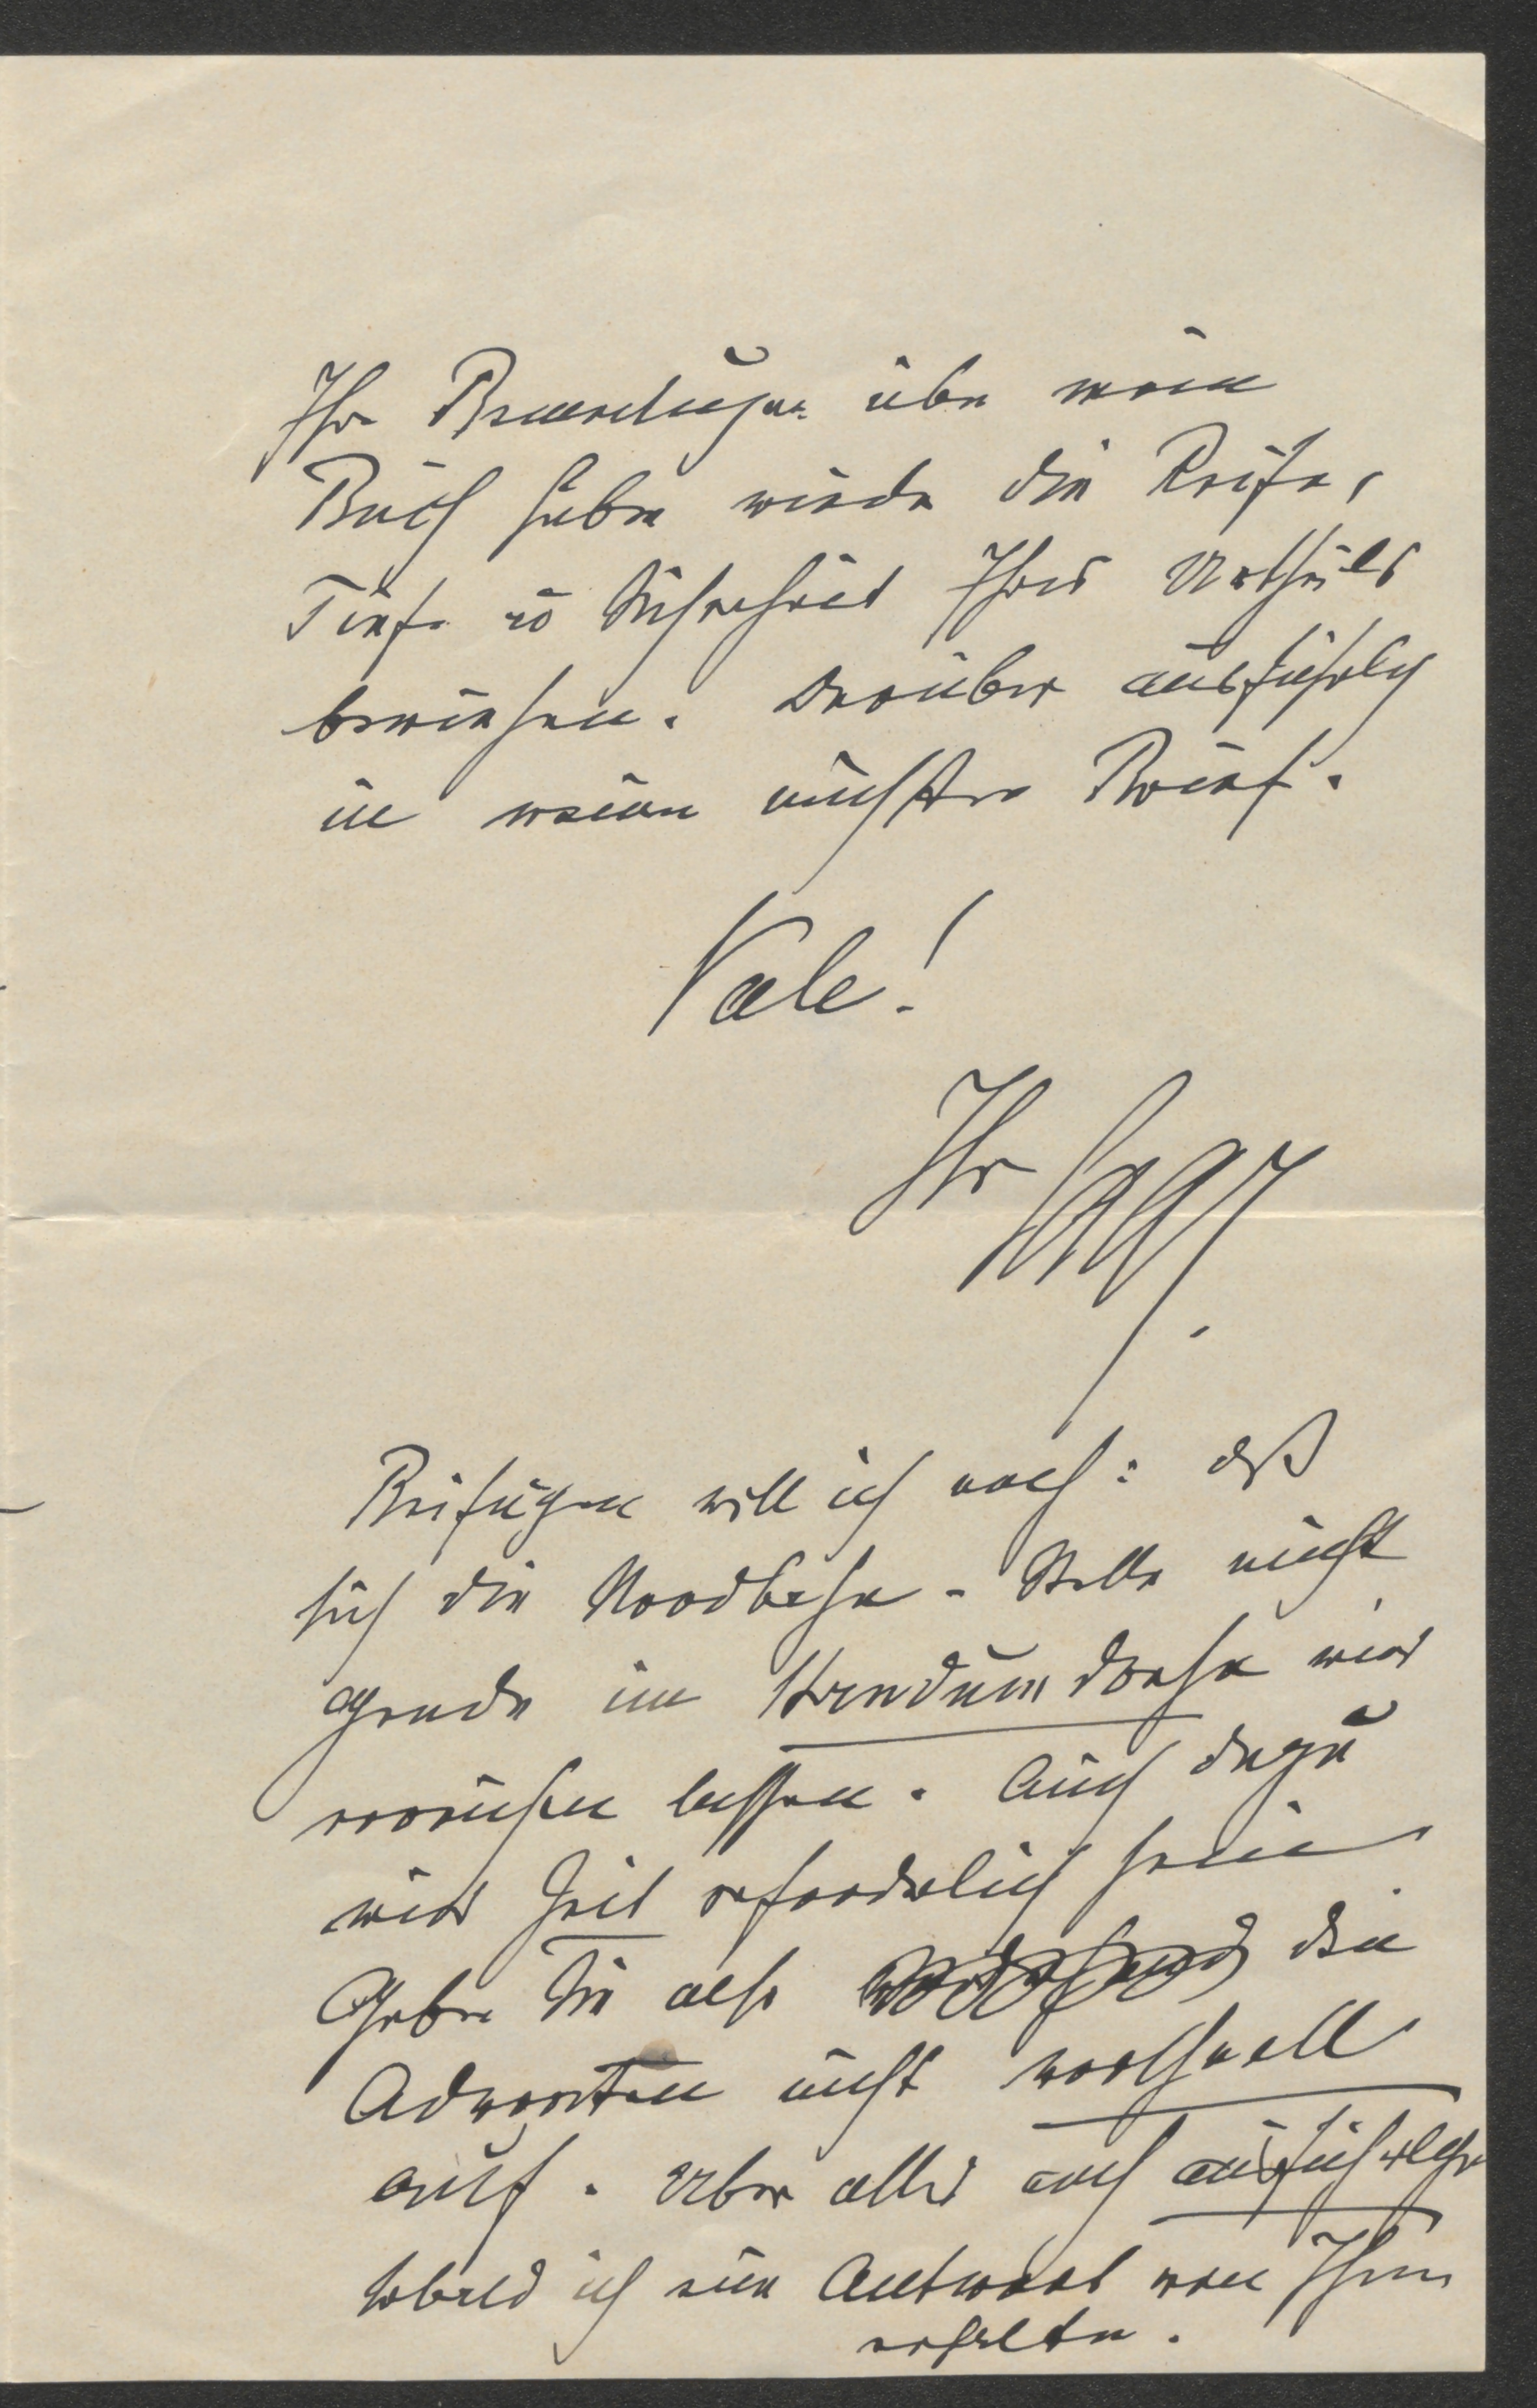 Ihre Bemerkungen über mein
Buch haben wieder die Reife,
Tiefe u Sicherheit Ihres Urtheils
bewiesen. Darüber ausführlich
in meinem nächsten Brief.
Vale!
Ihr
Beifügen will ich noch: daß
sich die Nordbahn-Stelle nicht
gerade im Handumdrehen wird
erreichen lassen. Auch dazu
wird Zeit erforderlich sein
Geben Sie also die
Advocatur nicht vorschnell
auf. Über alles noch ausführlicher
sobald ich eine Antwort von Ihnen
erhalten.